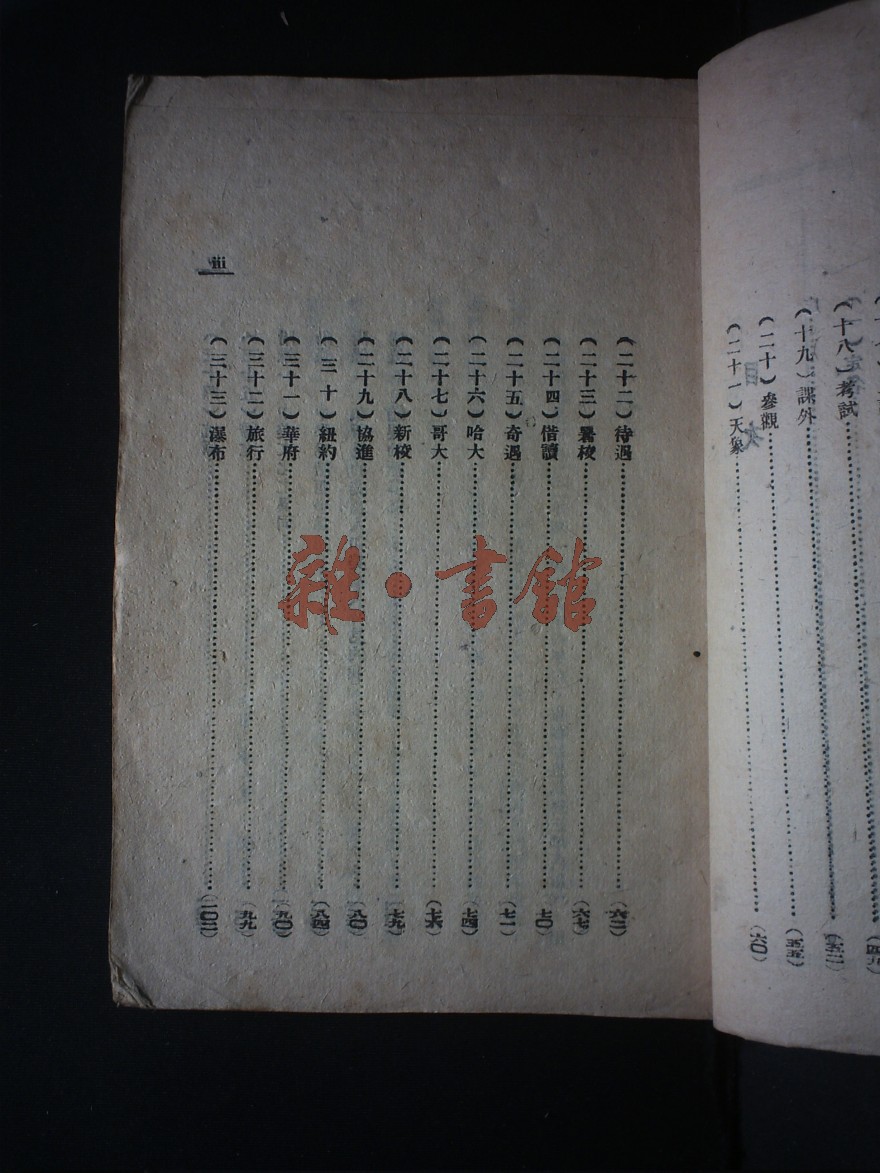 (十八)考試……(五二)
(十九)課外……(五五)
(二十)參觀
(二十一)天象……(六〇)
目次
iii
(二十二)待遇……(六二)
(二十三)暑校……(六七)
(二十四)借讀……(七〇)
(二十五)奇遇……(七一)
(二十六)哈大……(七四)
(二十七)哥大……(七六)
(二十八)新校……(七九)
(二十九)協進……(八〇)
(三十)紐約……(八四)
(三十一)華府……(九〇)
(三十二)旅行……(九九)
(三十三)瀑布……(一〇二)
雜·書館